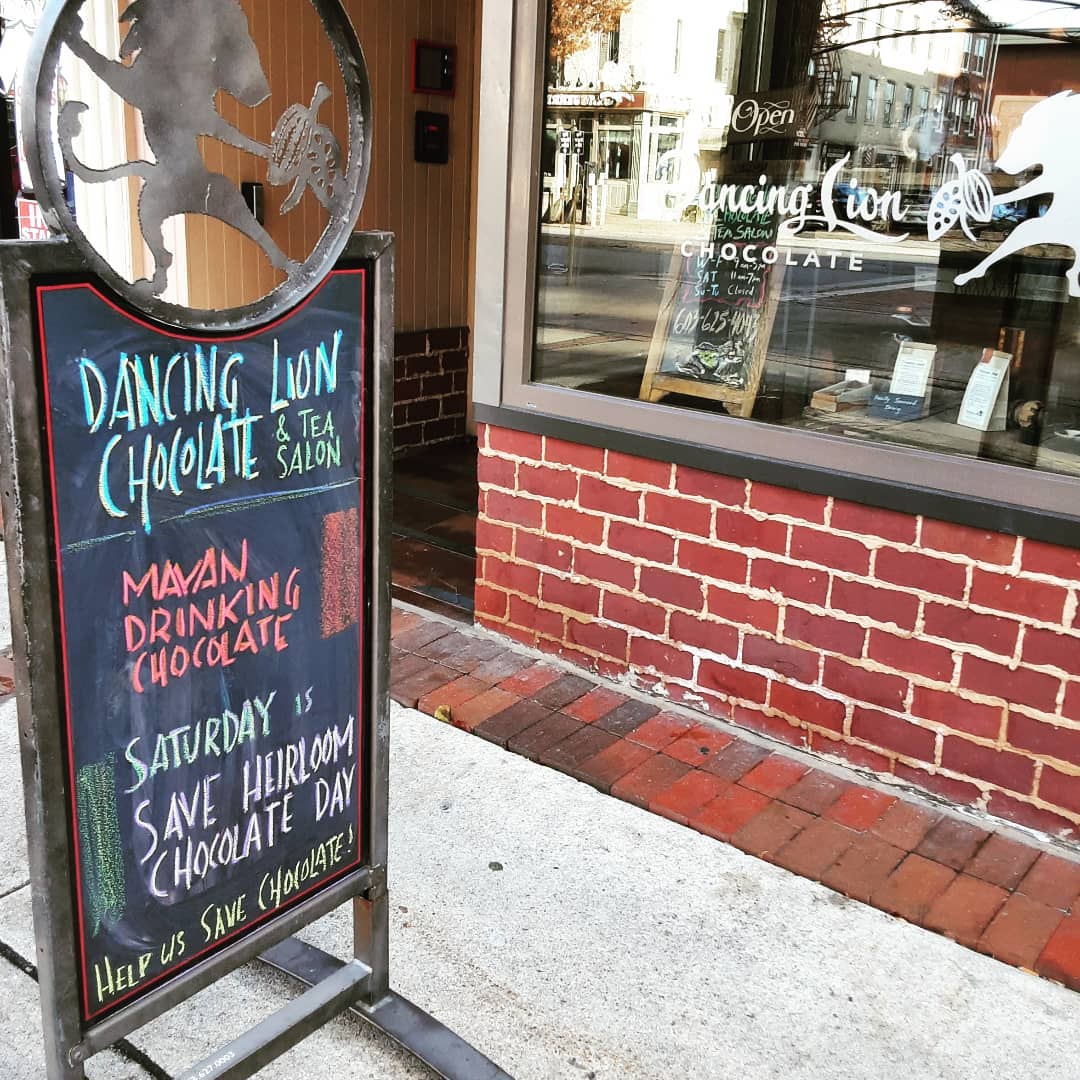 DANCING LION
CHOCOLATE
& TEA
SALON
MAYAN
DRINKING
CHOCOLATE
SATURDAY IS
SAVE HEIRLOOM
CHOCOLATE DAY
HELP US SAVE CHOCOLATE!
Open
Dancing Lion
CHOCOLATE
CHOCOLATE
TEA SALON
SAT 11am-7pm
Su-Tu Closed
603-625-4043